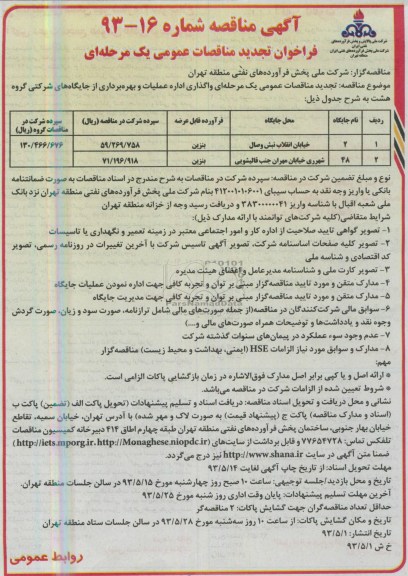 آگهی مناقصه شماره ۱۶-۹۳
فراخوان تجدید مناقصات عمومی یک مرحله‌ای
مناقصه‌گزار: شرکت ملی پخش فرآورده‌های نفتی منطقه تهران
موضوع مناقصه: تجدید مناقصات عمومی یک مرحله‌ای واگذاری اداره عملیات و بهره‌برداری از جایگاه‌های شرکتی گروه هشت به شرح جدول ذیل:
ردیف | نام جایگاه | محل جایگاه | فرآورده قابل عرضه | سپرده شرکت در مناقصه (ریال) | سپرده شرکت در مناقصات گروه (ریال)
۱ | ۲ | خیابان انقلاب نبش وصال | بنزین | ۵۹/۲۶۹/۷۵۸ | ۱۳۰/۴۶۶/۶۷۶
۲ | ۴۸ | شهرری خیابان جنب قالیشویی | بنزین | ۷۱/۱۹۶/۹۱۸
نوع و مبلغ تضمین شرکت در مناقصه: سپرده شرکت در مناقصات به شرح مندرج در اسناد مناقصات به صورت ضمانتنامه
بانکی یا واریز وجه نقد به حساب سیبای ۴۱۲۰۰۱۰۱۰۶۰۰۱ بنام شرکت ملی پخش فرآورده‌های نفتی منطقه تهران نزد بانک
ملی شعبه اقبال با شناسه واریز و دریافت رسید وجه از خزانه منطقه تهران
شرایط متقاضی (کلیه شرکت‌های توانمند با ارائه مدارک ذیل):
۱- تصویر گواهی تایید صلاحیت از اداره کار و امور اجتماعی معتبر در زمینه تعمیر و نگهداری یا تاسیسات
۲- تصویر کلیه صفحات اساسنامه شرکت، تصویر آگهی تاسیس شرکت با آخرین تغییرات در روزنامه رسمی، تصویر
کد اقتصادی و شناسه ملی
۳- تصویر کارت ملی و شناسنامه مدیرعامل و اعضای هیئت مدیره
۴- مدارک متقن و مورد تایید مناقصه‌گزار مبنی بر توان و تجربه کافی جهت اداره نمودن عملیات جایگاه
۵- مدارک متقن و مورد تایید مناقصه‌گزار مبنی بر توان و تجربه کافی جهت مدیریت جایگاه
۶- سوابق مالی شرکت‌کنندگان در مناقصه (از جمله صورت‌های مالی شامل ترازنامه، صورت سود و زیان، صورت گردش
وجوه نقد و یادداشت‌ها و توضیحات همراه صورت‌های مالی و...)
۷- عدم وجود سوء عملکرد در پیمان‌های سنوات گذشته شرکت
۸- مدارک و سوابق مورد نیاز الزامات HSE (ایمنی، بهداشت و محیط زیست) مناقصه‌گزار
مهم:
* ارائه اصل و یا کپی برابر اصل مدارک فوق‌الاشاره در زمان بازگشایی پاکات الزامی است.
* شروط تعیین شده از الزامات شرکت در مناقصه می‌باشد.
نشانی و محل دریافت و تحویل اسناد مناقصه: دریافت اسناد و تسلیم پیشنهادات (تحویل پاکت الف (تضمین) پاکت ب
(اسناد و مدارک مناقصه) پاکت ج (پیشنهاد قیمت) به صورت لاک و مهر شده) با آدرس تهران، خیابان سمیه، تقاطع
خیابان بهار جنوبی، ساختمان پخش فرآورده‌های نفتی منطقه تهران طبقه چهارم اطاق ۴۱۴ دبیرخانه کمیسیون مناقصات
تلفکس تماس: ۷۷۶۵۴۷۲۸ و قابل برداشت از سایت‌های (http://iets.mporg.ir، http://Monaghese.niopdc.ir)
ضمنا متن آگهی در سایت http://www.shana.ir نیز درج می‌گردد.
مهلت تحویل اسناد: از تاریخ چاپ آگهی لغایت ۹۳/۵/۱۴
تاریخ و محل بازدید/جلسه توجیهی: ساعت ۱۰ صبح روز چهارشنبه مورخ ۹۳/۵/۱۵ در سالن جلسات منطقه تهران
آخرین مهلت تسلیم پیشنهادات: پایان وقت اداری روز شنبه مورخ ۹۳/۵/۲۵
حداقل تعداد مناقصه‌گران جهت گشایش پاکات: ۲ مناقصه‌گر
تاریخ و مکان گشایش پاکات: از ساعت ۱۰ روز سه‌شنبه مورخ ۹۳/۵/۲۸ در سالن جلسات ستاد منطقه تهران
تاریخ انتشار: ۹۳/۵/۱
خ ش ۹۳/۵/۱
روابط عمومی